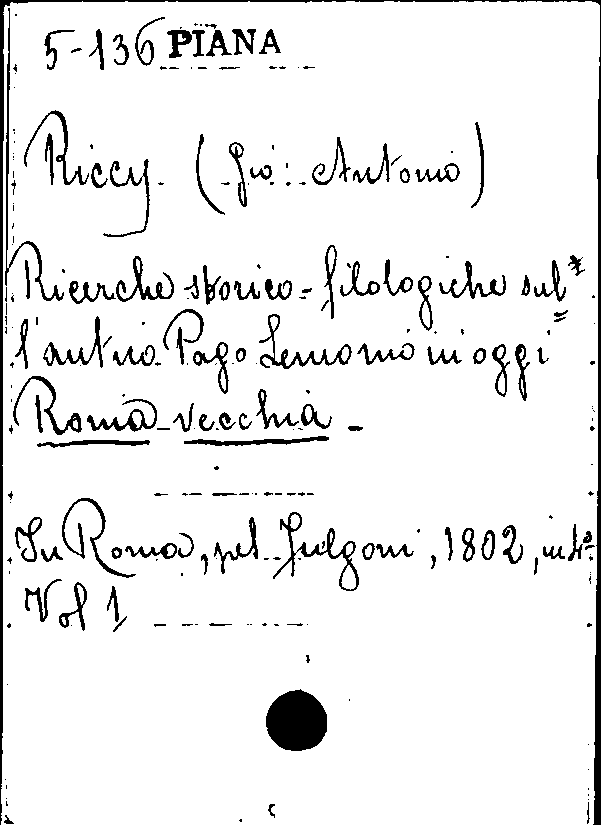 5-136 PIANA
Riccy (Gio: Antonio)
Ricerche storico-filologiche sul=
l'antico Pago Lemonio in oggi
Roma vecchia -
In Roma, pel Fulgoni, 1802, in 4º
Vol 1